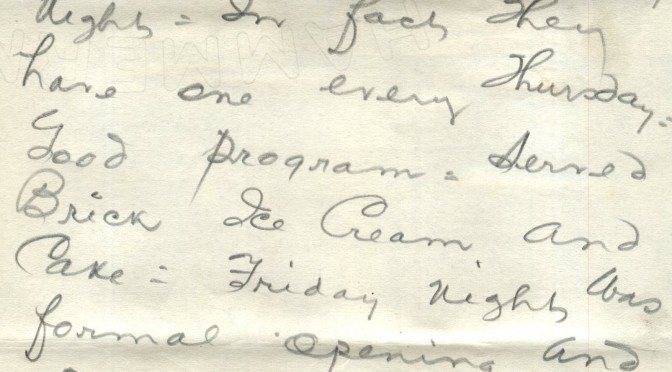 Night = In fact they
have one every Thursday =
Good program = Served
Brick Ice Cream and
Cake = Friday Night was
formal opening and